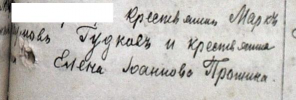 крестьянин Маркъ
новъ Гудковъ и крестьянка
Елена Іоаннова Пронина.